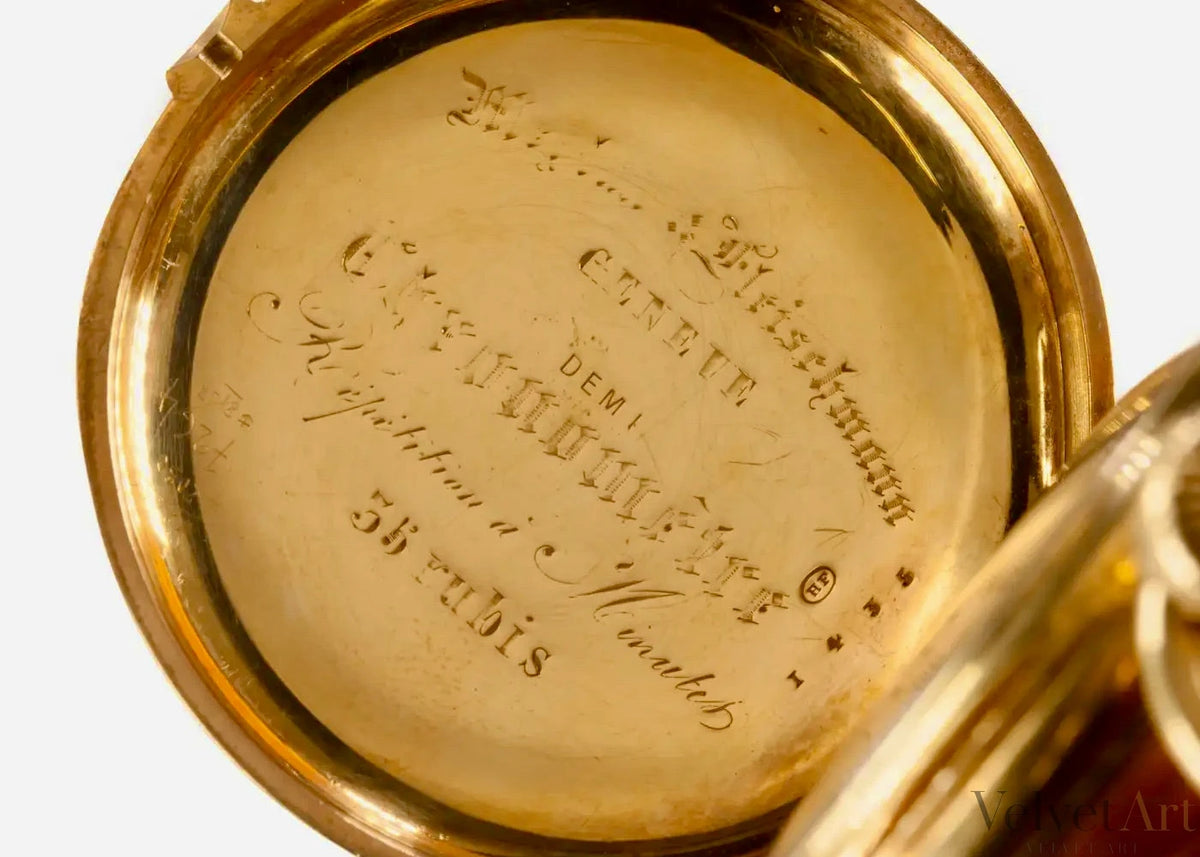 Fleischmann
GENEVE
DEMI
Chronomètre
Répétition à Minutes
35 RUBIS
HF
1435
Velvet Art
VELVET ART